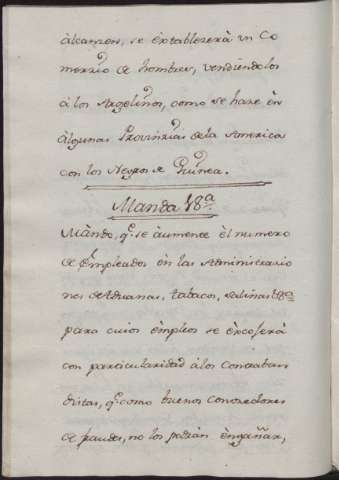 àlcanzen, se èxtablezerà ùn Co
merzio de hombres, vendiendolos
à los Argelinos, como se haze èn
àlgunas Provinzias dela America
con los Negros de Guinea.
Manda 18ª
Màndo, q.ᵉ se àumente èl numero
de èmpleados èn las Administrazio
nes de Aduanas, tabacos, salinas &ª
para cuios èmpleos se èscoxerà
con particularidad à los Contraban
distas, q.ᵉ como buenos Conozedores
de fraudes, no los podràn èngañar,